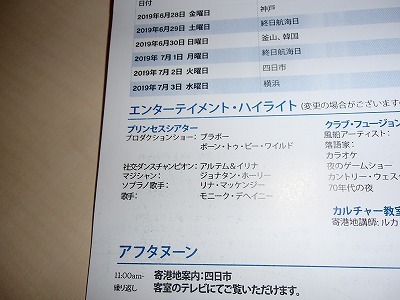 日付
2019年6月28日 金曜日 神戸
2019年6月29日 土曜日 終日航海日
2019年6月30日 日曜日 釜山、韓国
2019年 7月1日 月曜日 終日航海日
2019年 7月2日 火曜日 四日市
2019年 7月3日 水曜日 横浜
エンターテイメント・ハイライト (変更の場合がございます
プリンセスシアター
プロダクションショー: ブラボー
ボーン・トゥ・ビー・ワイルド
社交ダンスチャンピオン: アルテム&イリナ
マジシャン: ジョナタン・ホーリー
ソプラノ歌手: リナ・マッケンジー
歌手: モニーク・デヘイニー
クラブ・フュージョン
風船アーティスト:
落語家:
カラオケ
夜のゲームショー
カントリー・ウェス
70年代の夜
カルチャー教室
寄港地講師: ルカ
アフタヌーン
11:00am- 寄港地案内: 四日市
繰り返し 客室のテレビにてご覧いただけます。